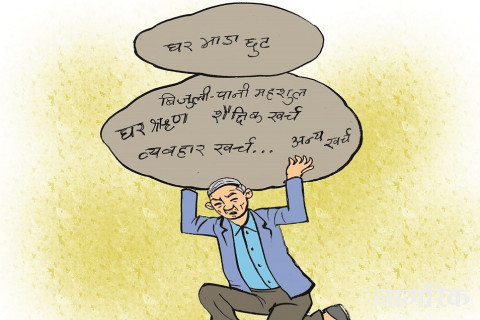 घर भाडा छुट
बिजुली-पानी महशुल
घर ऋण शैक्षिक खर्च
व्यवहार खर्च... अन्य खर्च
नागरिक